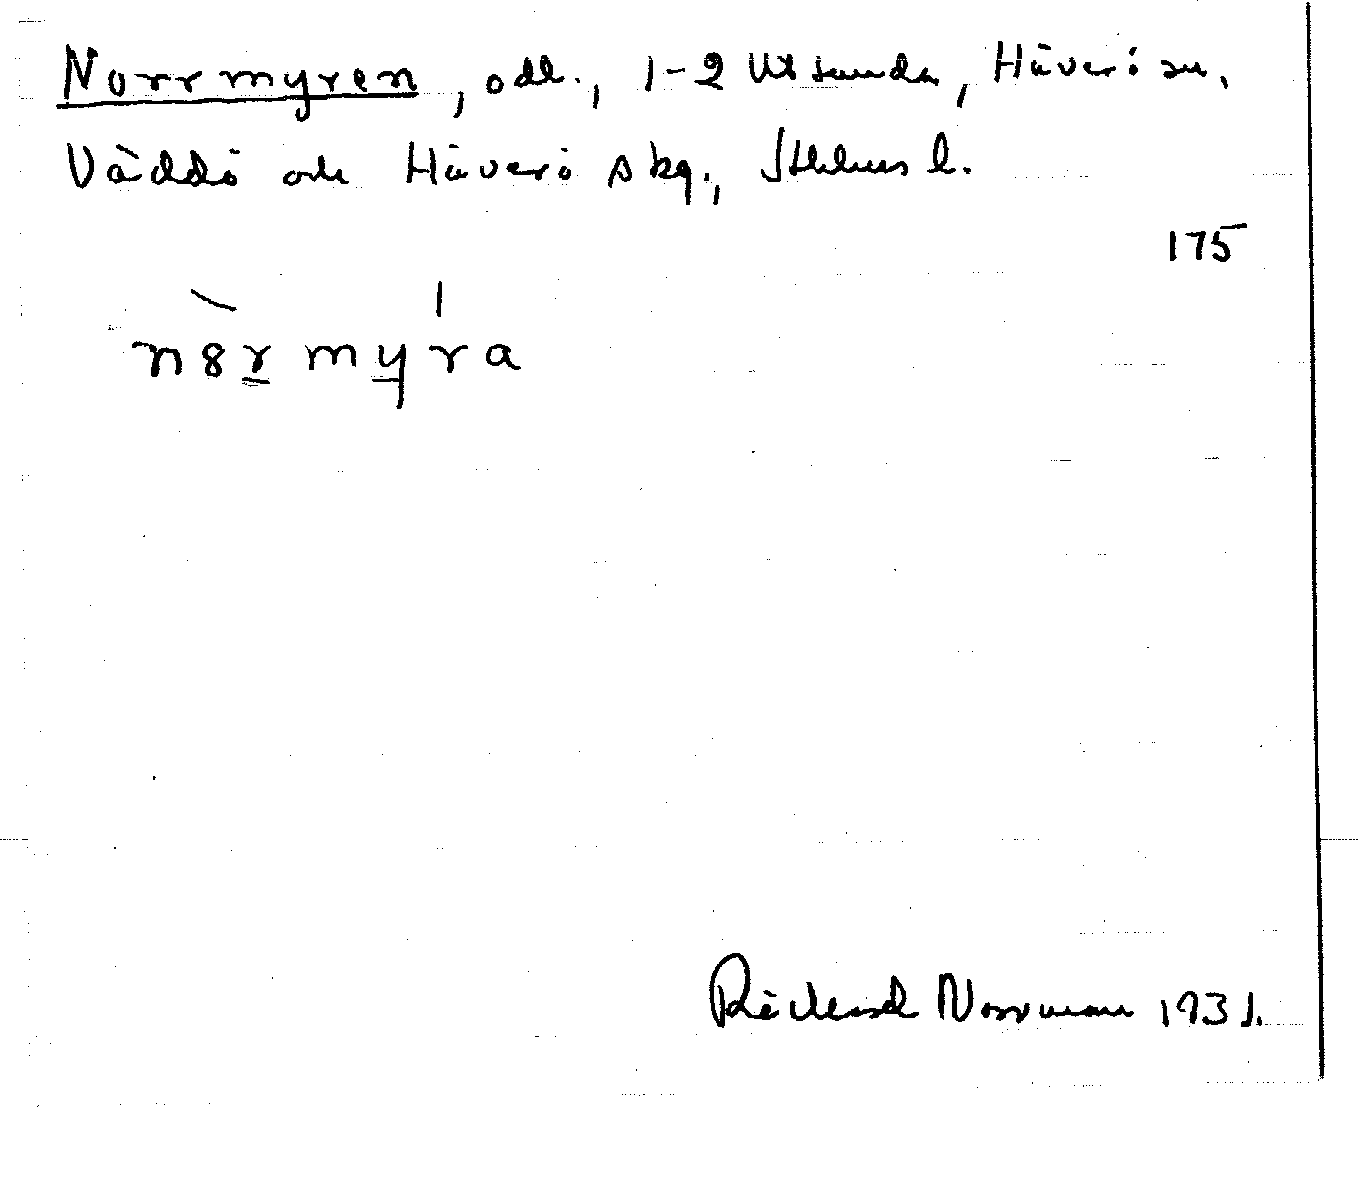 Norrmyren, odl., 1-2 Utsunda, Häverö sn,
Väddö och Häverö skg., Sthlms l.
175
n8rmyra
Rickard Norrman 1931.